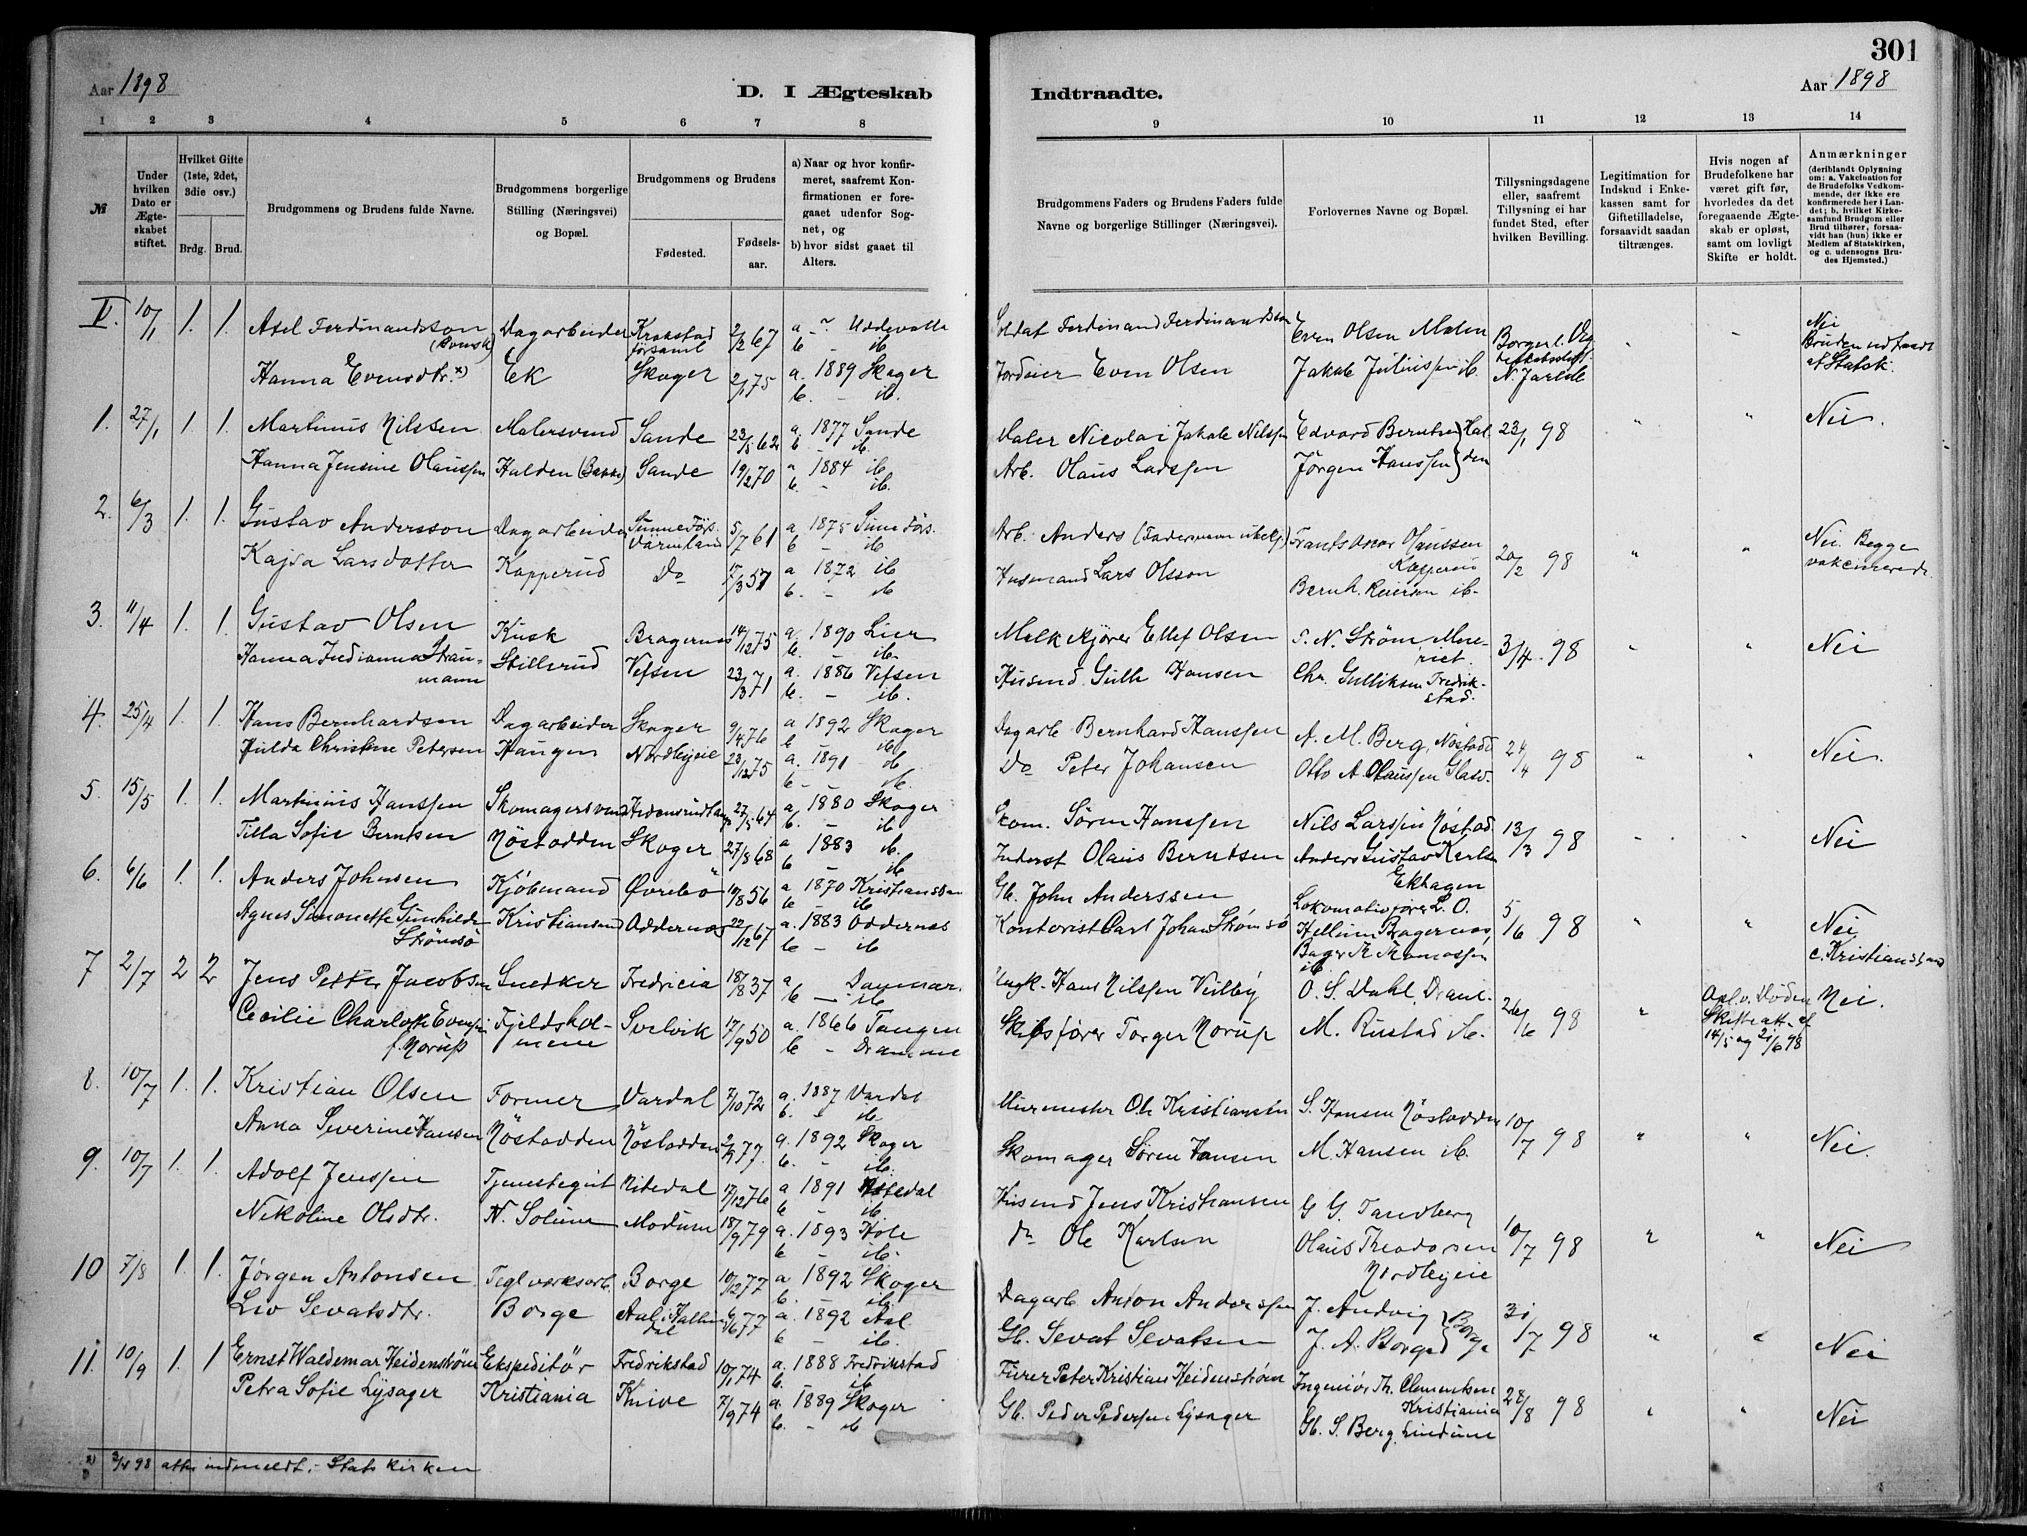 301
Aar 1898
D. I Ægteskab
Indtraadte.
Aar 1898
1 2 3 4 5 6 7 8 9 10 11 12 13 14
№
Under hvilken Dato er Ægteskabet stiftet.
Hvilket Gifte (1ste, 2det, 3die osv.)
Brdg. Brud.
Brudgommens og Brudens fulde Navne.
Brudgommens borgerlige Stilling (Næringsvei) og Bopæl.
Brudgommens og Brudens
Fødested.
Fødselsaar.
a) Naar og hvor konfirmeret, saafremt Konfirmationen er foregaaet udenfor Sognet, og
b) hvor sidst gaaet til Alters.
Brudgommens Faders og Brudens Faders fulde Navne og borgerlige Stillinger (Næringsvei).
Forlovernes Navne og Bopæl.
Tillysningsdagene eller, saafremt Tillysning ei har fundet Sted, efter hvilken Bevilling.
Legitimation for Indskud i Enkekassen samt for Giftetilladelse, forsaavidt saadan tiltrænges.
Hvis nogen af Brudefolkene har været gift før, hvorledes da det foregaaende Ægteskab er opløst, samt om lovligt Skifte er holdt.
Anmærkninger (deriblandt Oplysning om: a. Vakcination for de Brudefolks Vedkommende, der ikke ere konfirmerede her i Landet; b. hvilket Kirkesamfund Brudgom eller Brud tilhører, forsaavidt han (hun) ikke er Medlem af Statskirken, og c. udensogns Brudes Hjemsted.)
10/1 1. 1. Axel Ferdinandsson Dagarbeider Krokstad 2/2 67 a - ~ Uddevalla Soldat Ferdinand Ferdinandsson Even Olsen Borgerl. Nei
(svensk) församl b - ib Bruden udtraadt
Hanna Evensdtr. x) Ek Skoger 2/1 75 a. 1889 Skoger Jordeier Even Olsen Jakob Juliussen ib. N. Jarlsb. af Statsk.
b. - ib.
1. 27/1 1. 1. Martinus Nilssen Malersvend Sande 23/5 62 a. 1877 Sande Maler Nicolai Jakob Nilssen Edvard Berntsen Hal- 23/1 98 " " Nei.
b - ib.
Hanna Jensine Olaussen Halden (Bakke) Sande 19/2 70 a 1884 ib Arb. Olaus Larssen Jørgen Hanssen den
b. - ib.
2. 6/3 1. 1. Gustav Andersson Dagarbeider Sunne Förs. 5/7 61 a. 1875 Sunne Förs. Arb. Anders (Fadernavn ubekj.) Frants Oscar Olaussen 20/2 98 " " Nei. Begge
Värmland b - ib Kopperud vakcinerede.
Kajsa Larsdotter Kopperud Do 17/3 57 a 1872 ib Husmand Lars Olsson Bernh. Reiersen ib.
b. - ib
3. 11/4 1. 1. Gustav Olsen Kusk Bragernes 14/12 75 a. 1890 Lier Melkekjører Ellef Olsen S. N. Strøm Meie- 3/4 98 " Nei
b. - ib. riet.
Hanna Indianna Strau- Stillerud Vefsen 23/3 71 a. 1886 Vefsen Husmd. Gulb Hansen Chr. Gulliksen Fredrik-
mann b. - ib. stad.
4. 25/4 1. 1. Hans Bernhardsen Dagarbeider Skoger 9/4 76 a 1892 Skoger Dagarb Bernhard Hanssen A. M. Berg, Nøstodd 24/4 98 " " Nei.
b - ib.
Hulda Christine Petersen Haugen Nordbyeie 23/12 75 a. 1891 ib Do Peter Johansen Otto A. Olaussen Glasv.
b - ib.
5. 15/5 1. 1. Martinius Hanssen Skomagersvend 27/5 64 a. 1880 Skoger Skom. Søren Hanssen Nils Larssen Nøstod. 13/3 98 " " Nei
b. - ib
Tilla Sofie Berntsen Nøstodden Skoger 27/8 68 a 1883 ib. Inderst Olaus Berntsen Anders Gustav Karlsen
b - ib Ekhagen
6. 6/6 1. 1. Anders Johnsen Kjøbmand Øvrebø 10/8 56 a 1870 Kristianssan Gb. John Anderssen Lokomotivfører L. O. 5/6 98 " " Nei
b - ib Hellum Bragernes,
Agnes Simonette Gunhilde Kristianssand Oddernes 22/12 67 a. 1883 Oddernes Kontorist Carl Johan Strømsø Bager Th Thomassen c. Kristianssand
Strömsö b - ib ib
7 2/7 2 2 Jens Petter Jacobsen Snedker Fredricia 18/8 37 a Danmar. Ungk. Hans Nilssen Veilby O. S. Dahl, Dram- 26/6 98 " Opl. v. Døden Nei.
b - ib
Cecilie Charlotte Evensen Fjeldshol- Svelvik 17/9 50 a. 1866 Tangen Skibsfører Torger Norup M. Rustad ib. Skifteatt. af
f. Norup mene b - Dramme 14/5 og 21/6 98
8. 10/7 1. 1. Kristian Olsen Former Vardal 7/10 72 a. 1887 Vardal Murmester Ole Kristiansen S. Hansen Nøstodden 10/7 98 " " Nei.
b. - ib
Anna Severine Hansen Nøstodden Nøstodden 77 a. 1892 Skoger Skomager Søren Hansen M. Hansen ib.
b. - ib.
9. 10/7 1. 1. Adolf Jenssen Tjenestegut Nitedal 17/12 76 a 1891 Nitedal Husmd Jens Kristiansen G G. Tandberg 10/7 98 " " Nei
b - ib
Nikoline Olsdtr. N. Solum Modum 18/9 79 a. 1893 Hole Do Ole Karlsen Olaus Theodorsen
b - ib. Nordbyeie
10 7/8 1. 1. Jørgen Antonsen Teglværksarb. Borge 10/12 77 a 1892 Skoger Dagarb Anton Anderssen J. Andvig Borge 31/7 98 " " Nei
b. - ib.
Liv Sevatsdtr. Borge Aal i Hallin 6/6 77 a. 1892 Aal Gb. Sevat Sevatsen J. A. Borge
dal b - ib.
11. 10/9 1. 1 Ernst Waldemar Heidenstrøm Ekspeditør Fredrikstad 10/1 74 a. 1888 Fredrikstad Furer Peter Kristian Heidenstrøm Ingeniør Th. Clementsen 28/8 98 " " Nei
b. - ib Kristiania
Petra Sofie Lysager Kristiania Knive 7/9 74 a. 1889 Skoger Gb. Peder Pedersen Lysager Gb. S. Berg, Lindum
b. - ib
x) 98 atter indmeldt i Statskirken